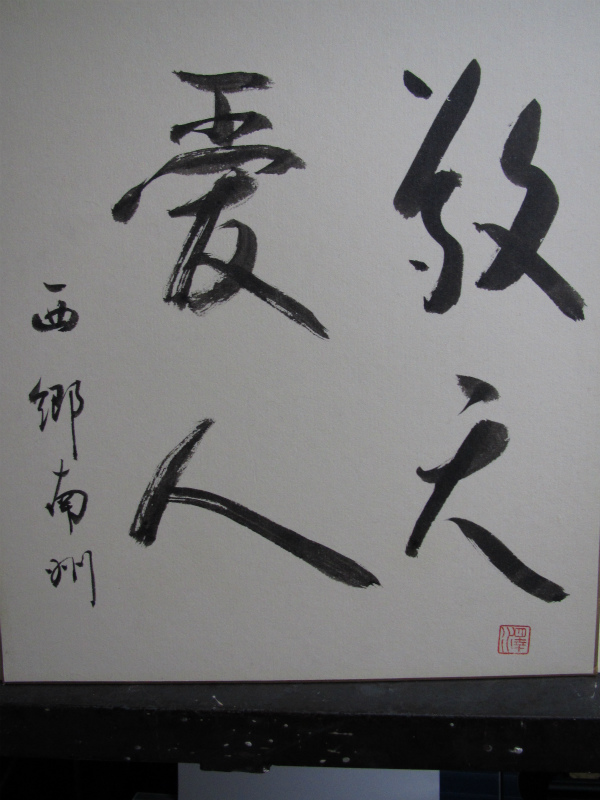 敬天
愛人
西郷南洲
澤